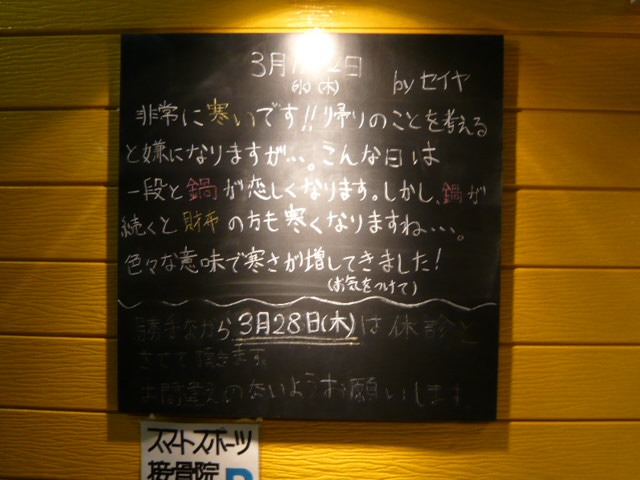 3月 日 by セイヤ
(木)
非常に寒いです!!帰りのことを考える
と嫌になりますが…。こんな日は
一段と鍋が恋しくなります。しかし、鍋が
続くと財布の方も寒くなりますね…。
色々な意味で寒さが増してきました!
(お気をつけて)
勝手ながら3月28日(木)は休診と
させて頂きます。
お間違えのないようお願いします
スマートスポーツ
接骨院
P